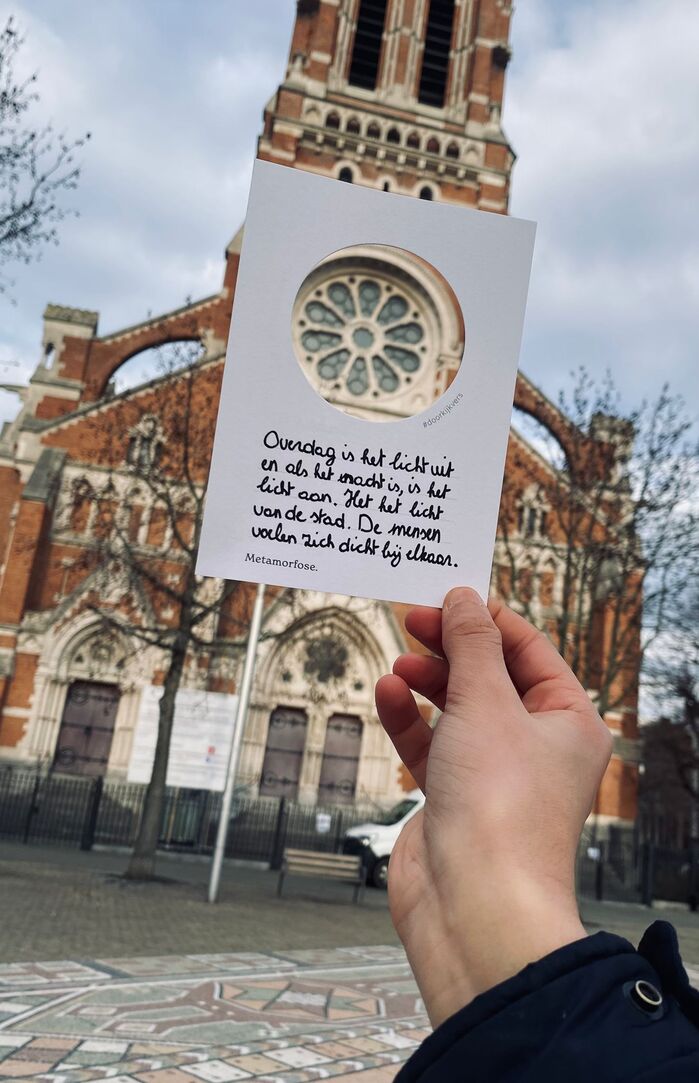 #doorkijkvers
Overdag is het licht uit
en als het nacht is, is het
licht aan. Het het licht
van de stad. De mensen
voelen zich dicht bij elkaar.
Metamorfose.